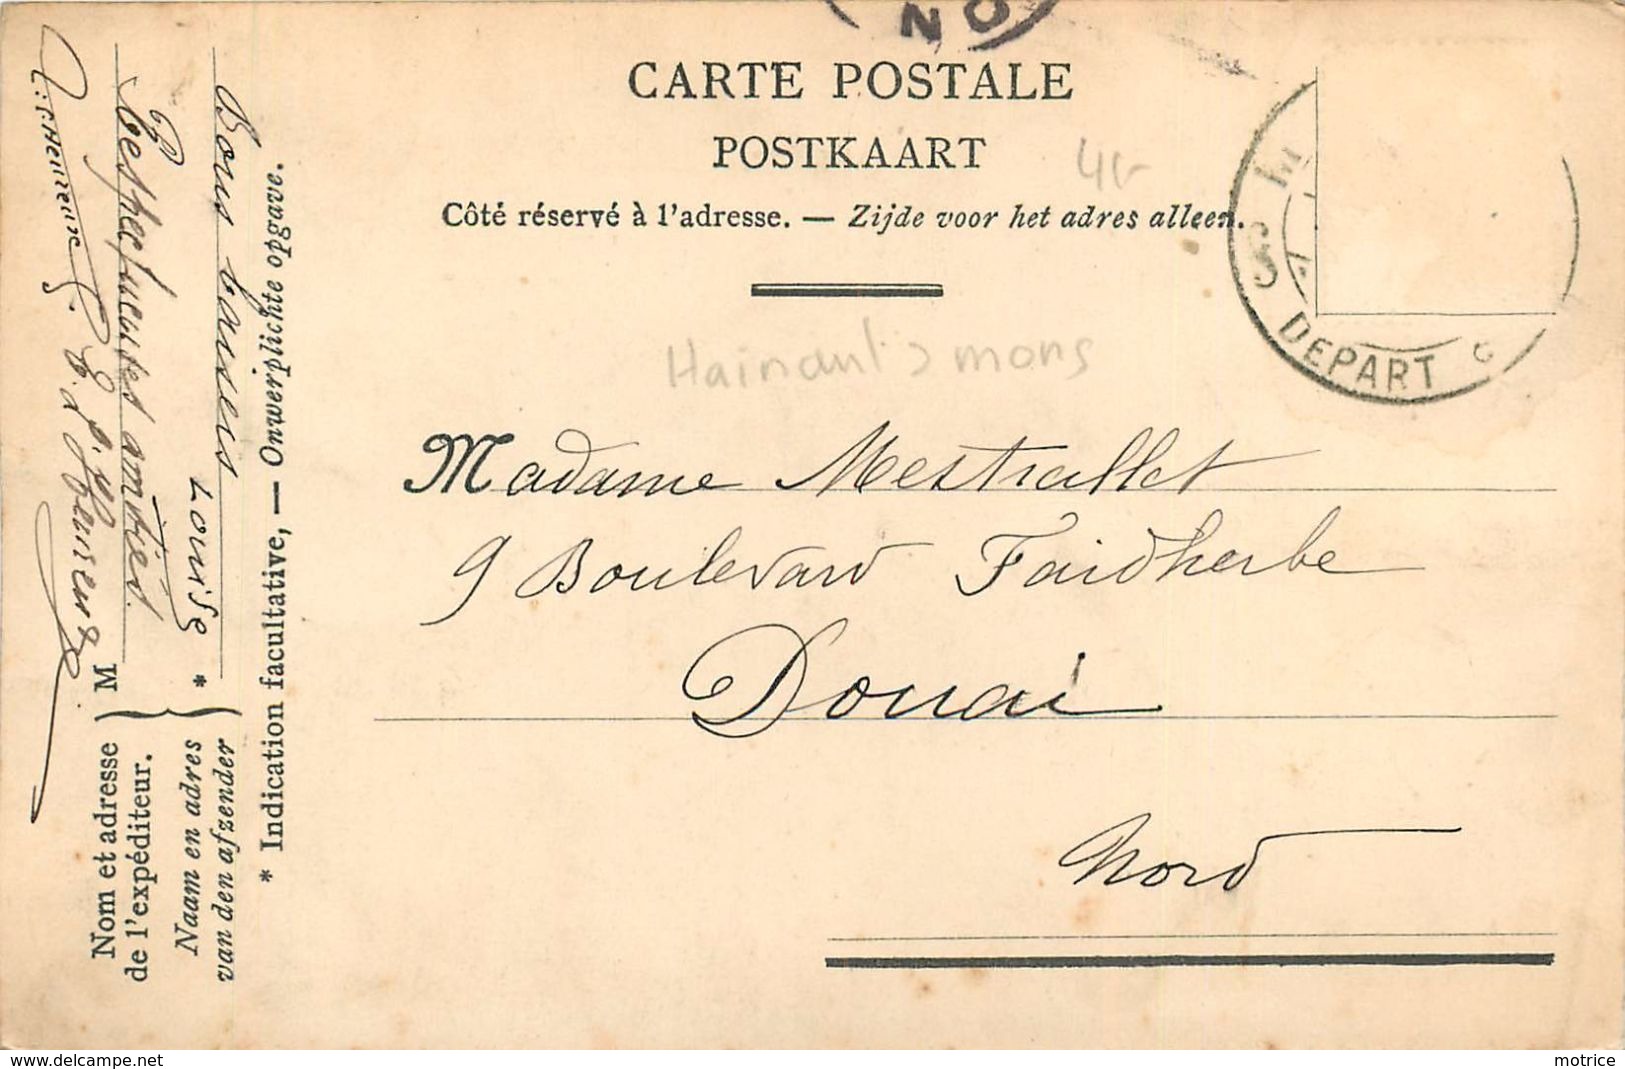 NO
CARTE POSTALE
POSTKAART
Côté réservé à l'adresse. — Zijde voor het adres alleen.
DEPART
Hainaut > mons
Madame Mestrallet
9 Boulevard Faidherbe
Douai
Nord
Bons baisers
Louise
respectueuses amitiés
Nom et adresse
de l'expéditeur.
M
Naam en adres
van den afzender
*
* Indication facultative, — Onwerplichte opgave.
www.delcampe.net
motrice